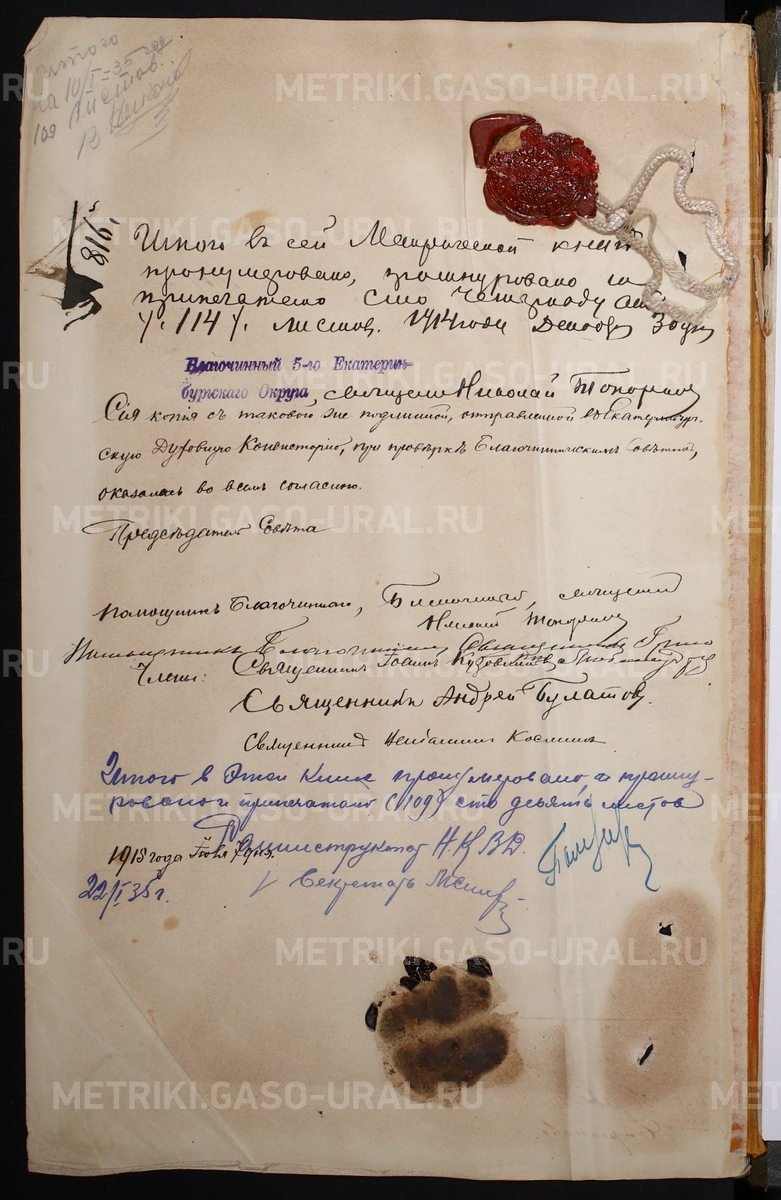 Итого
на 10/I–35 год
109 листов.
816,
Итого въ сей Метрической книгѣ
пронумеровано, прошнуровано и
припечатано сто четырнадцать
/. 114 /. листовъ. 1914 года Декабря 30 дня
Благочинный 5-го Екатерин-
бургскаго Округа, священникъ Николай Топорковъ
Сія копія съ таковою же подлинной, отправленной въ Екатеринбург-
скую Духовную Консисторію, при провѣркѣ Благочинническимъ Совѣтомъ,
оказалась во всемъ согласною.
Предсѣдатель Совѣта
Помощникъ Благочиннаго, Благочинный, священникъ
Николай Топорковъ
Помощникъ Благочиннаго, Священникъ
Члены: Священникъ Іоаннъ
Священникъ Андрей Булатовъ.
Священникъ Веніаминъ
Итого в этой книге пронумеровано, и прошну-
ровано и припечатано (109) сто девять листов
1915 года Іюля дня. инструктор Н.К.В.Д.
22/I 35 г. Секретарь
METRIKI.GASO-URAL.RU